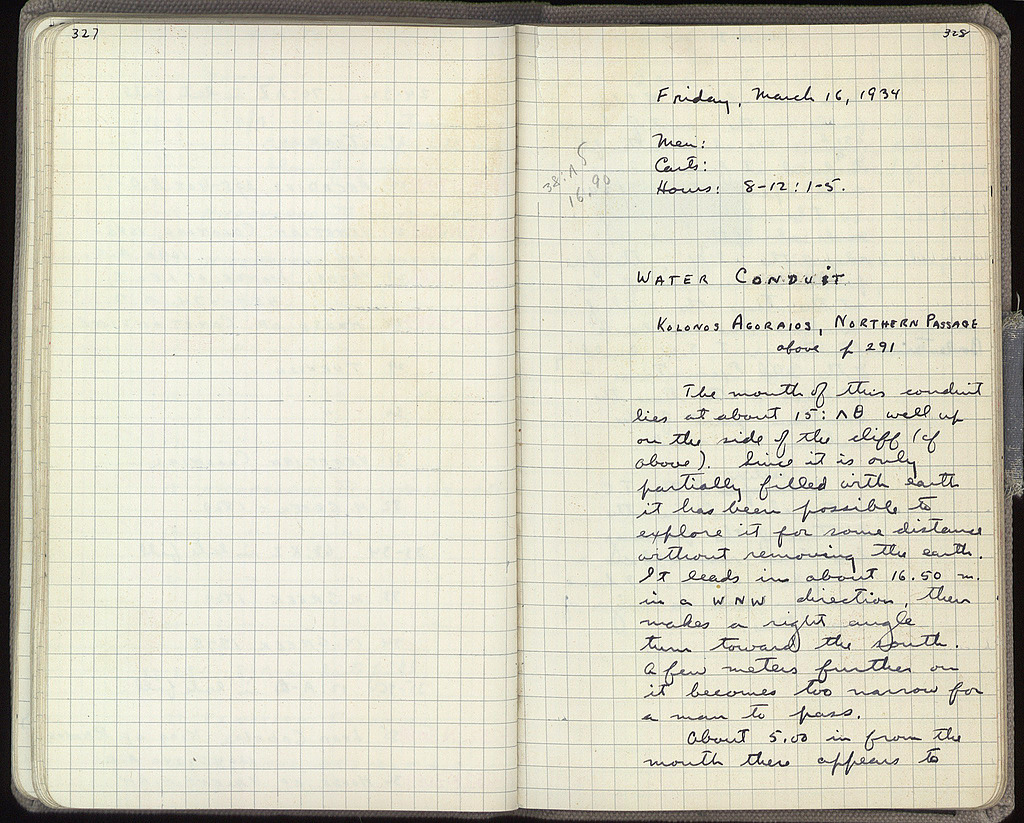 327
328
Friday, March 16, 1934
Men:
Carts:
Hours: 8-12: 1-5.
16.90
WATER CONDUIT
KOLONOS AGORAIOS, NORTHERN PASSAGE
above p 291
The mouth of this conduit
lies at about 15: ΛΘ well up
on the side of the cliff (cf
above). Since it is only
partially filled with earth
it has been possible to
explore it for some distance
without removing the earth.
It leads in about 16.50 m.
in a WNW direction, then
makes a right angle
turn toward the south.
A few meters further on
it becomes too narrow for
a man to pass.
About 5.00 in from the
mouth there appears to